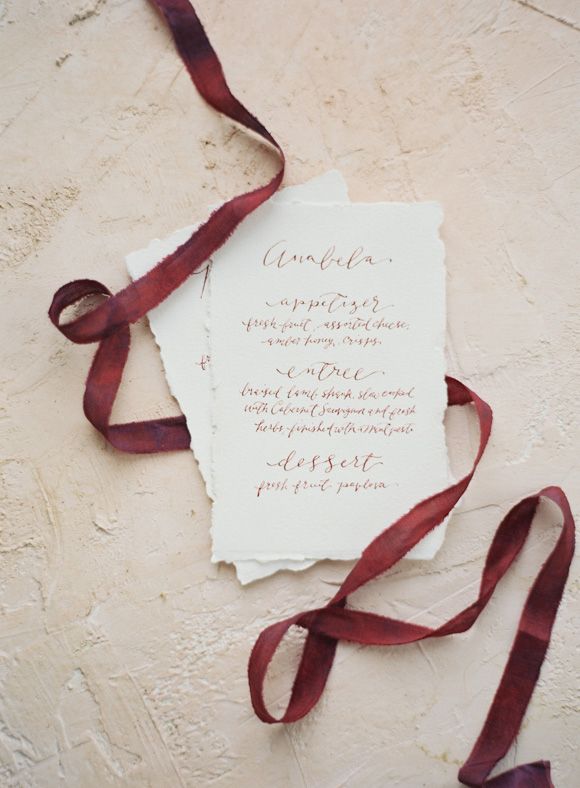 Anabela
appetizer
fresh fruit, assorted cheese,
amber honey, crisps
entree
braised lamb shank, slow cooked
with Cabernet Sauvignon and fresh
herbs, finished with a mint pesto
dessert
fresh fruit pavlova